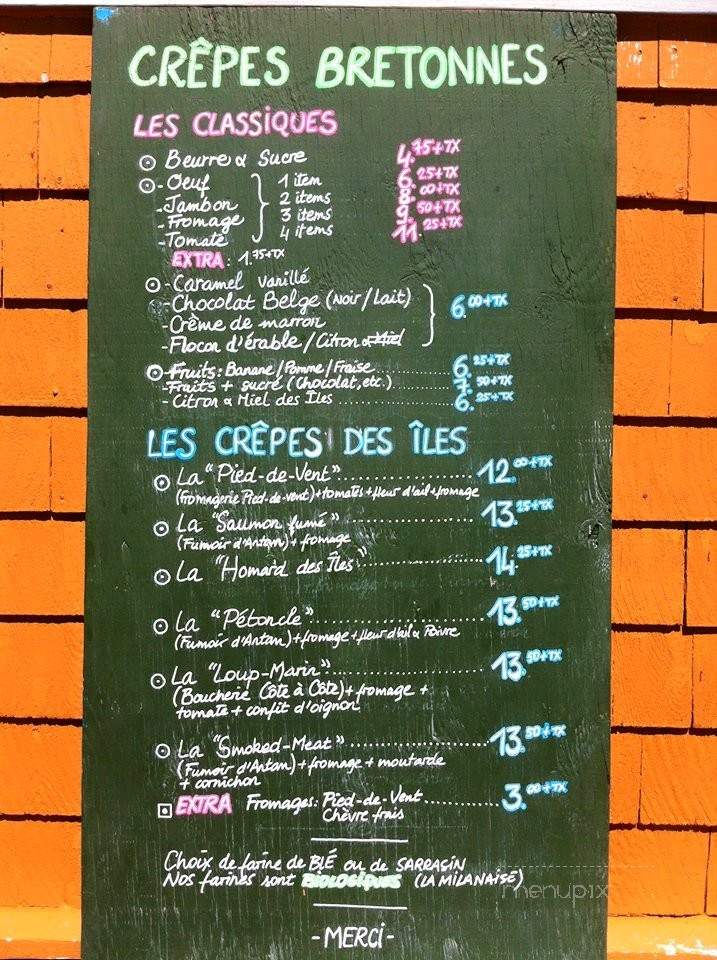 CRÊPES BRETONNES
LES CLASSIQUES
Beurre & Sucre 4.75+TX
- Oeuf 1 item 6.25+TX
- Jambon 2 items 8.00+TX
- Fromage 3 items 9.50+TX
- Tomate 4 items 11.25+TX
EXTRA : 1.75+TX
- Caramel vanillé
- Chocolat Belge (Noir/Lait) 6.00+TX
- Crème de marron
- Flocon d'érable / Citron & Miel
- Fruits: Banane/Pomme/Fraise 6.25+TX
- Fruits + sucre (Chocolat, etc.) 7.50+TX
- Citron & Miel des Iles 6.25+TX
LES CRÊPES DES ÎLES
La "Pied-de-Vent" 12.00+TX
(Fromagerie Pied-de-vent)+tomates+fleur d'ail+fromage
La "Saumon fumé" 13.25+TX
(Fumoir d'Antan)+ fromage
La "Homard des Îles" 14.25+TX
La "Pétoncle" 13.50+TX
(Fumoir d'Antan)+fromage+fleur d'ail & Poivre
La "Loup-Marin" 13.50+TX
(Boucherie Côte à Côte)+ fromage +
tomate + confit d'oignon
La "Smoked-Meat" 13.50+TX
(Fumoir d'Antan)+ fromage + moutarde
+ cornichon
EXTRA Fromages: Pied-de-Vent 3.00+TX
Chèvre frais
Choix de farine de BLÉ ou de SARRASIN
Nos farines sont BIOLOGIQUES (LA MILANAISE)
menupix
- MERCI -